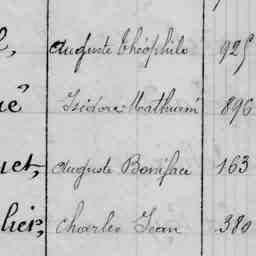 l, auguste théophile 925
ué Isidore Mathurin 896
uet, auguste Boniface 163
lier, Charles Jean 380